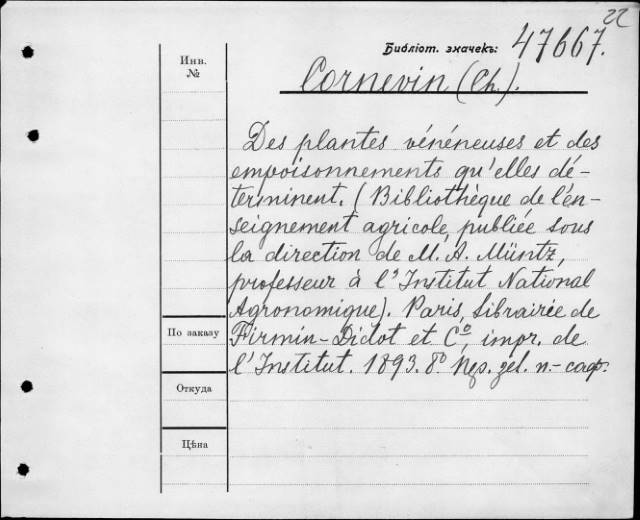 22
Библіот. значекъ: 47667.
Инв.
№
Cornevin (Ch.).
Des plantes vénéneuses et des
empoisonnements qu'elles dé-
terminent. (Bibliothèque de l'en-
seignement agricole, publiée sous
la direction de M. A. Müntz,
professeur à l'Institut National
Agronomique). Paris, librairie de
Firmin-Didot et Cº, impr. de
l'Institut. 1893. 8º
По заказу
Откуда
Цѣна